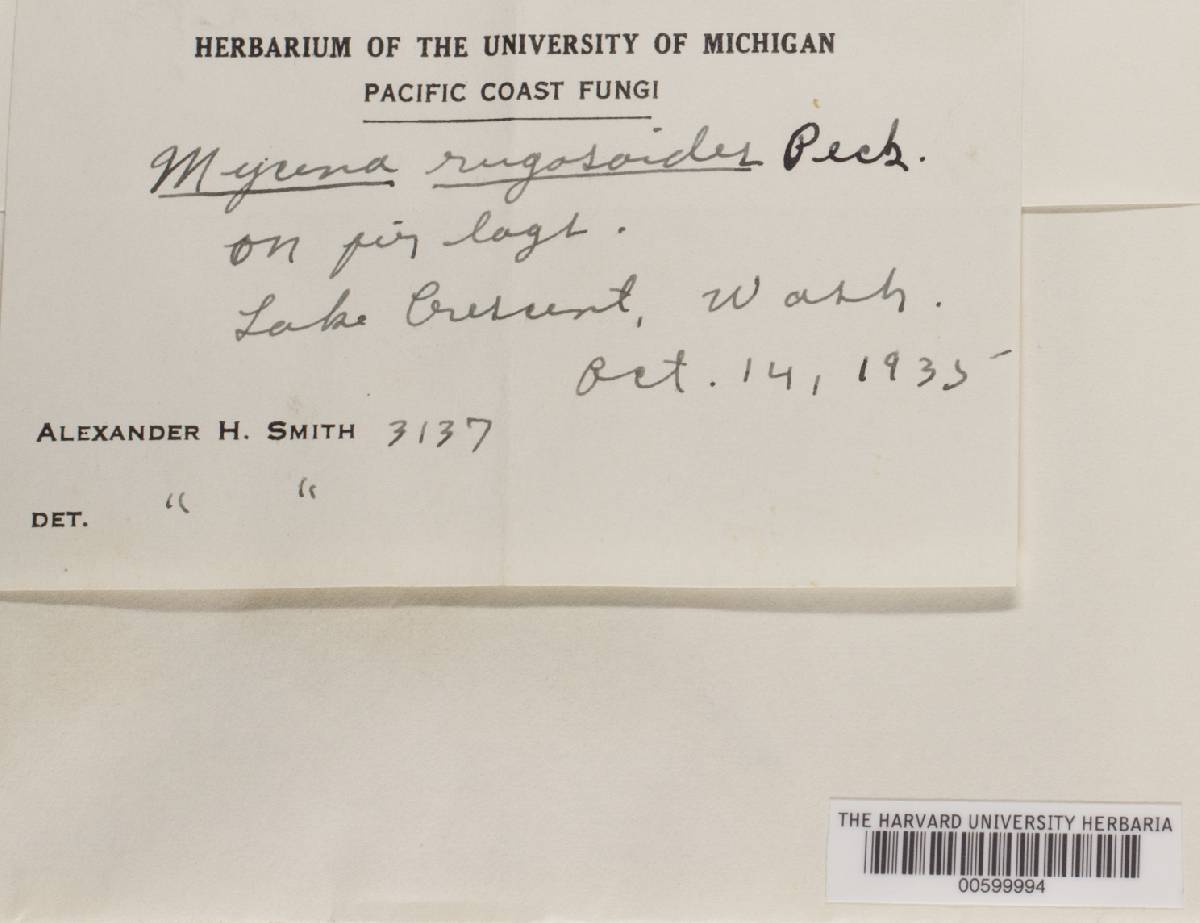 HERBARIUM OF THE UNIVERSITY OF MICHIGAN
PACIFIC COAST FUNGI
Mycena rugosoides Peck.
on fir logs.
Lake Crescent, Wash.
Oct. 14, 1935
ALEXANDER H. SMITH 3137
DET. " "
THE HARVARD UNIVERSITY HERBARIA
00599994